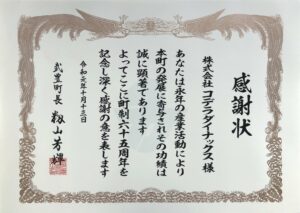 感謝状
株式会社コデラダイナックス 様
あなたは永年の産業活動により
本町の発展に寄与されその功績は
誠に顕著であります
よってここに町制六十五周年を
記念し深く感謝の意を表します
令和元年十月十三日
武豊町長 籾山芳輝